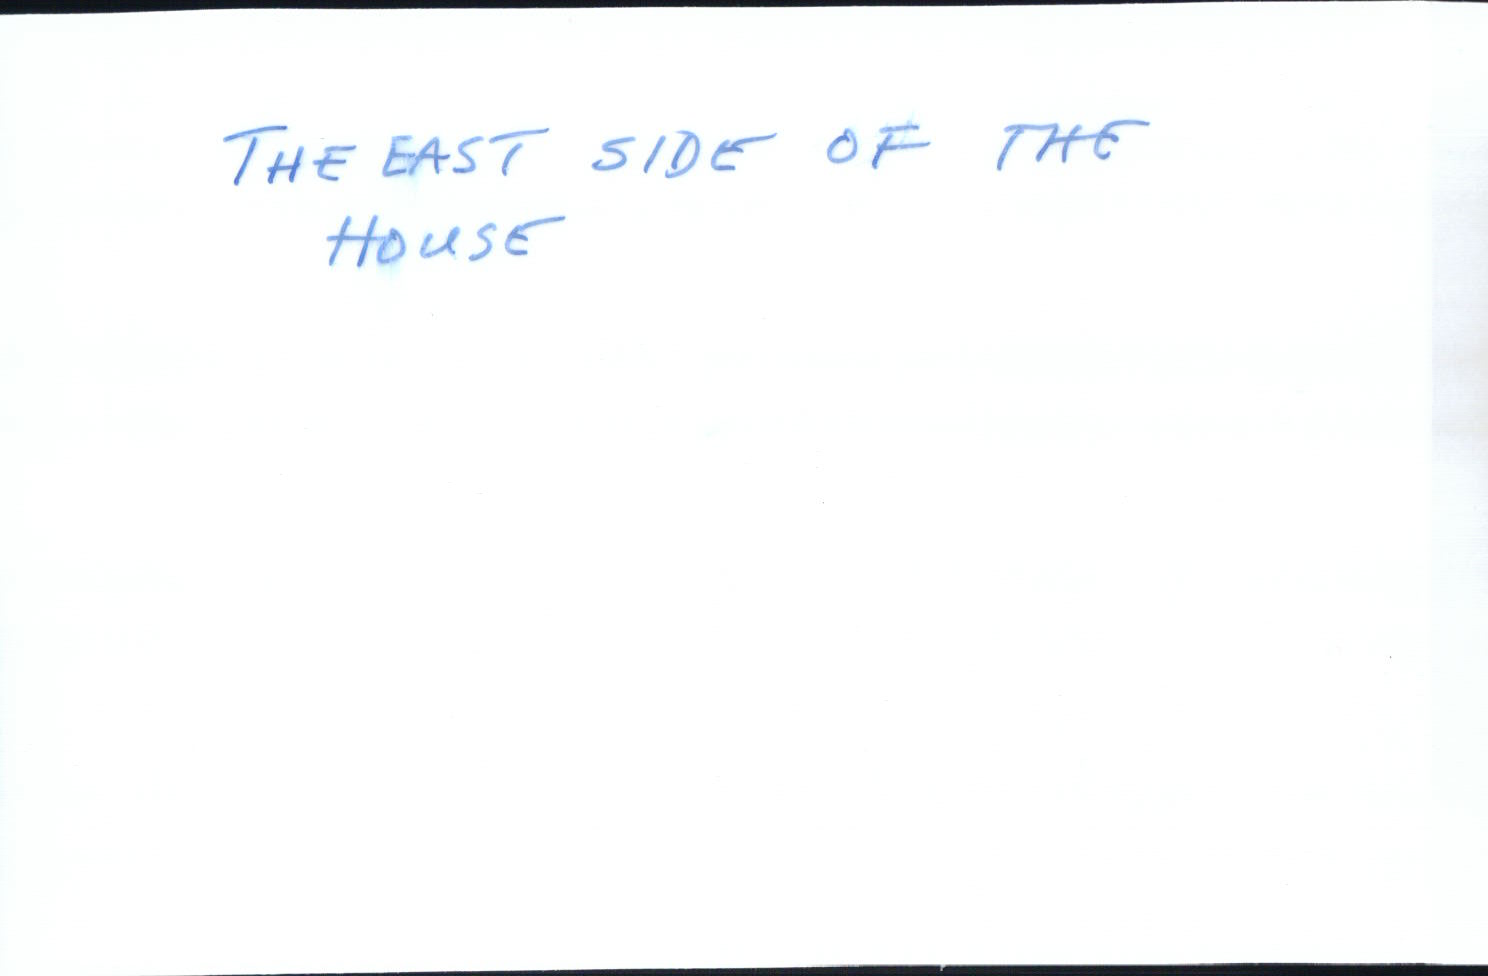 THE EAST SIDE OF THE
HOUSE